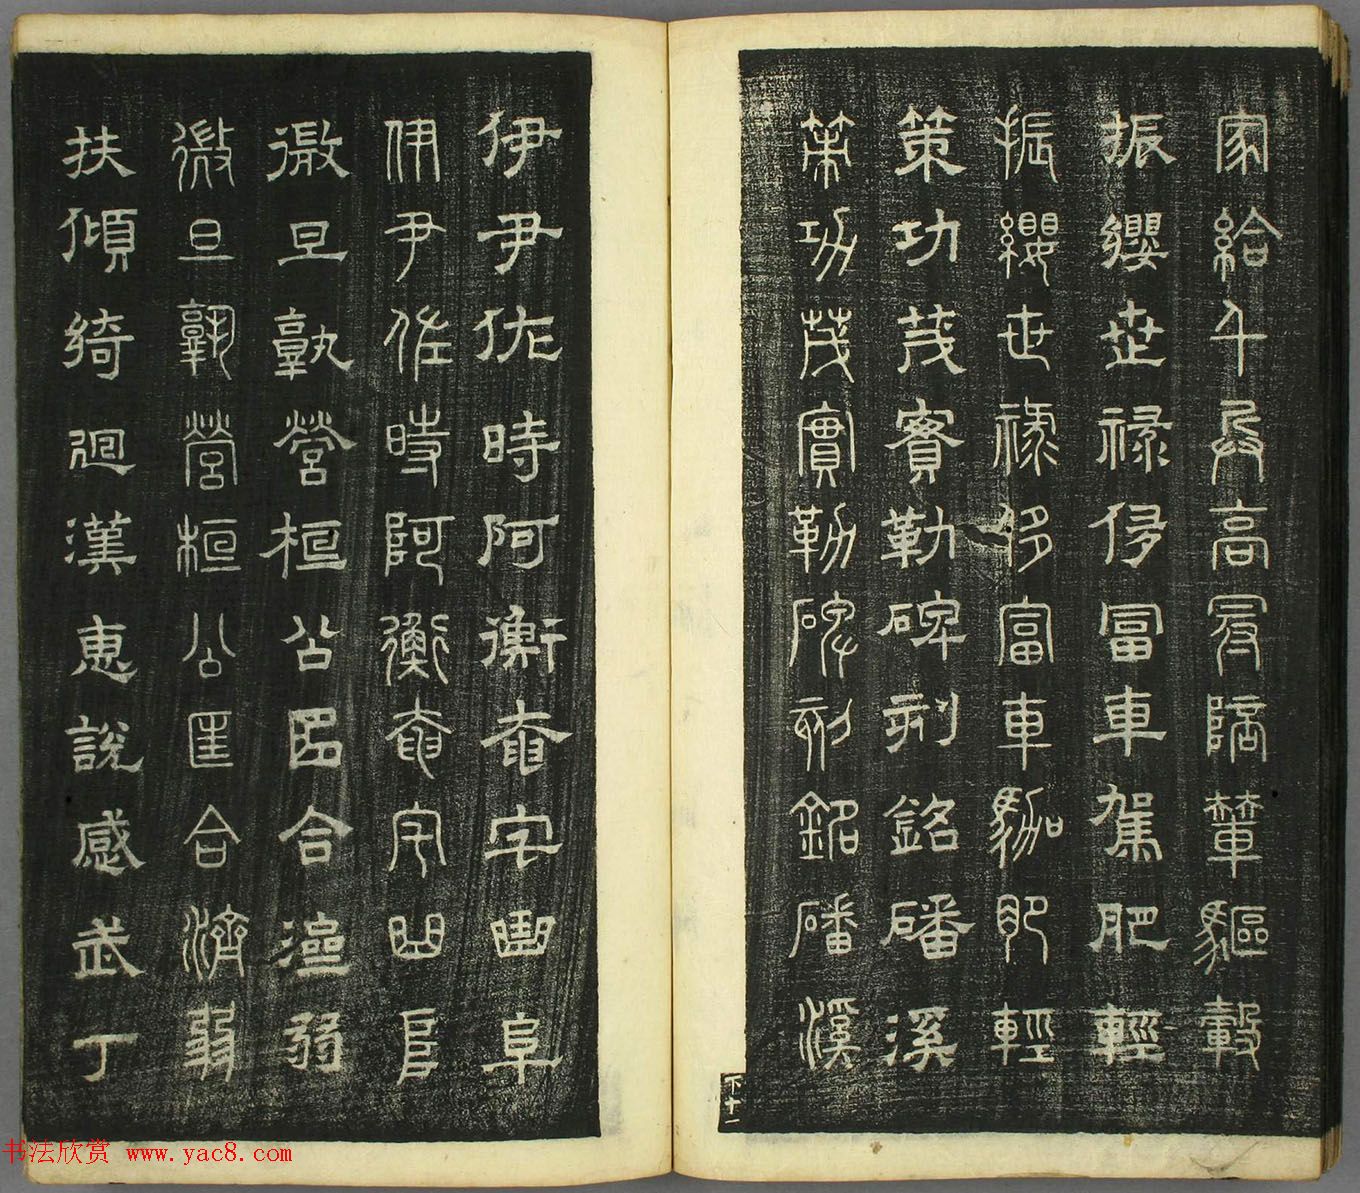 家給千兵高冠陪輦驅轂
振纓世祿侈富車駕肥輕
振纓世祿侈富車駕肥輕
策功茂實勒碑刻銘磻溪
策功茂實勒碑刻銘磻溪
下十一
伊尹佐時阿衡奄宅曲阜
伊尹佐時阿衡奄宅曲阜
微旦孰營桓公匡合濟弱
微旦孰營桓公匡合濟弱
扶傾綺迴漢惠說感武丁
书法欣赏 www.yac8.com